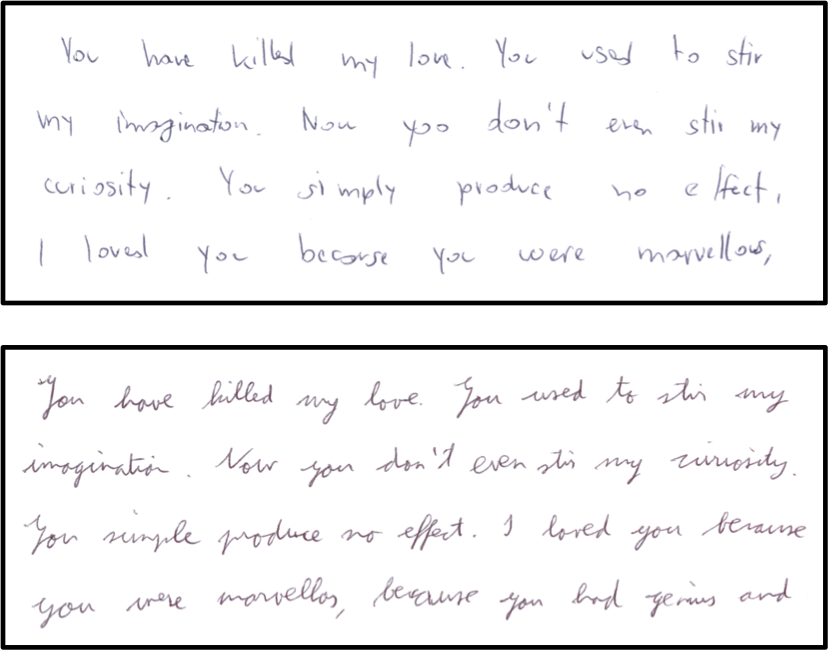 You have killed my love. You used to stir
my imagination. Now you don't even stir my
curiosity. You simply produce no effect,
I loved you because you were marvellous,
You have killed my love. You used to stir my
imagination. Now you don't even stir my curiosity.
You simple produce no effect. I loved you because
you were marvellos, because you had genius and